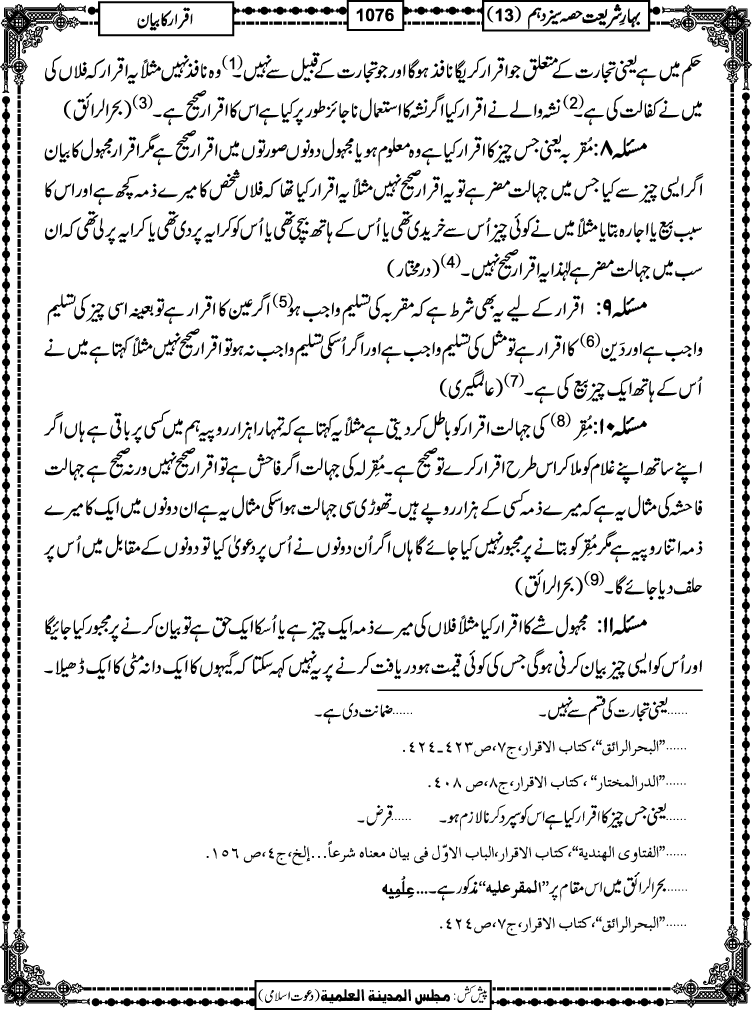 بہارِ شریعت حصہ سیزدہم (13)
1076
اقرار کا بیان
حکم میں ہے یعنی تجارت کے متعلق جو اقرار کریگا نافذ ہوگا اور جو تجارت کے قبیل سے نہیں۔(1) وہ نافذ نہیں مثلاً یہ اقرار کہ فلاں کی
میں نے کفالت کی ہے۔(2) نشہ والے نے اقرار کیا اگر نشہ کا استعمال ناجائز طور پر کیا ہے اس کا اقرار صحیح ہے۔(3) (بحرالرائق)
مسئلہ ۸: مُقَر بہ یعنی جس چیز کا اقرار کیا ہے وہ معلوم ہو یا مجہول دونوں صورتوں میں اقرار صحیح ہے مگر اقرار مجہول کا بیان
اگر ایسی چیز سے کیا جس میں جہالت مضر ہے تو یہ اقرار صحیح نہیں مثلاً یہ اقرار کیا تھا کہ فلاں شخص کا میرے ذمہ کچھ ہے اور اس کا
سبب بیع یا اجارہ بتایا مثلاً میں نے کوئی چیز اُس سے خریدی تھی یا اُس کے ہاتھ بیچی تھی یا اُس کو کرایہ پر دی تھی یا کرایہ پر لی تھی کہ ان
سب میں جہالت مضر ہے لہٰذا یہ اقرار صحیح نہیں۔(4) (درمختار)
مسئلہ ۹: اقرار کے لیے یہ بھی شرط ہے کہ مقر بہ کی تسلیم واجب ہو(5) اگر عین کا اقرار ہے تو بعینہ اسی چیز کی تسلیم
واجب ہے اور دَین (6) کا اقرار ہے تو مثل کی تسلیم واجب ہے اور اگر اُسکی تسلیم واجب نہ ہو تو اقرار صحیح نہیں مثلاً کہتا ہے میں نے
اُس کے ہاتھ ایک چیز بیع کی ہے۔(7) (عالمگیری)
مسئلہ ۱۰: مُقِر (8) کی جہالت اقرار کو باطل کر دیتی ہے مثلاً یہ کہتا ہے کہ تمہارا ہزار روپیہ ہم میں کسی پر باقی ہے ہاں اگر
اپنے ساتھ اپنے غلام کو ملا کر اس طرح اقرار کرے تو صحیح ہے۔ مُقِر لہ کی جہالت اگر فاحش ہے تو اقرار صحیح نہیں ورنہ صحیح ہے جہالت
فاحشہ کی مثال یہ ہے کہ میرے ذمہ کسی کے ہزار روپے ہیں۔ تھوڑی سی جہالت ہو اسکی مثال یہ ہے ان دونوں میں ایک کا میرے
ذمہ اتنا روپیہ ہے مگر مُقِر کو بتانے پر مجبور نہیں کیا جائے گا ہاں اگر اُن دونوں نے اُس پر دعویٰ کیا تو دونوں کے مقابل میں اُس پر
حلف دیا جائے گا۔(9) (بحرالرائق)
مسئلہ ۱۱: مجہول شے کا اقرار کیا مثلاً فلاں کی میرے ذمہ ایک چیز ہے یا اُسکا ایک حق ہے تو بیان کرنے پر مجبور کیا جائیگا
اور اُس کو ایسی چیز بیان کرنی ہوگی جس کی کوئی قیمت ہو دریافت کرنے پر یہ نہیں کہہ سکتا کہ گیہوں کا ایک دانہ مٹی کا ایک ڈھیلا۔
......یعنی تجارت کی قسم سے نہیں۔ ......ضمانت دی ہے۔
......"البحرالرائق"، کتاب الاقرار، ج٧، ص٤٢٣۔٤٢٤.
......"الدرالمختار"، کتاب الاقرار، ج٨، ص ٤٠٨.
......یعنی جس چیز کا اقرار کیا ہے اس کو سپرد کرنا لازم ہو۔ ......قرض۔
......"الفتاوی الھندیة"، کتاب الاقرار، الباب الاوّل فی بیان معناہ شرعاً...إلخ، ج٤، ص ١٥٦.
......بحرالرائق میں اس مقام پر "المقر علیہ" مذکور ہے۔... عِلْمِیہ
......"البحرالرائق"، کتاب الاقرار، ج٧، ص٤٢٤.
پیش کش: مجلس المدینۃ العلمیۃ (دعوت اسلامی)